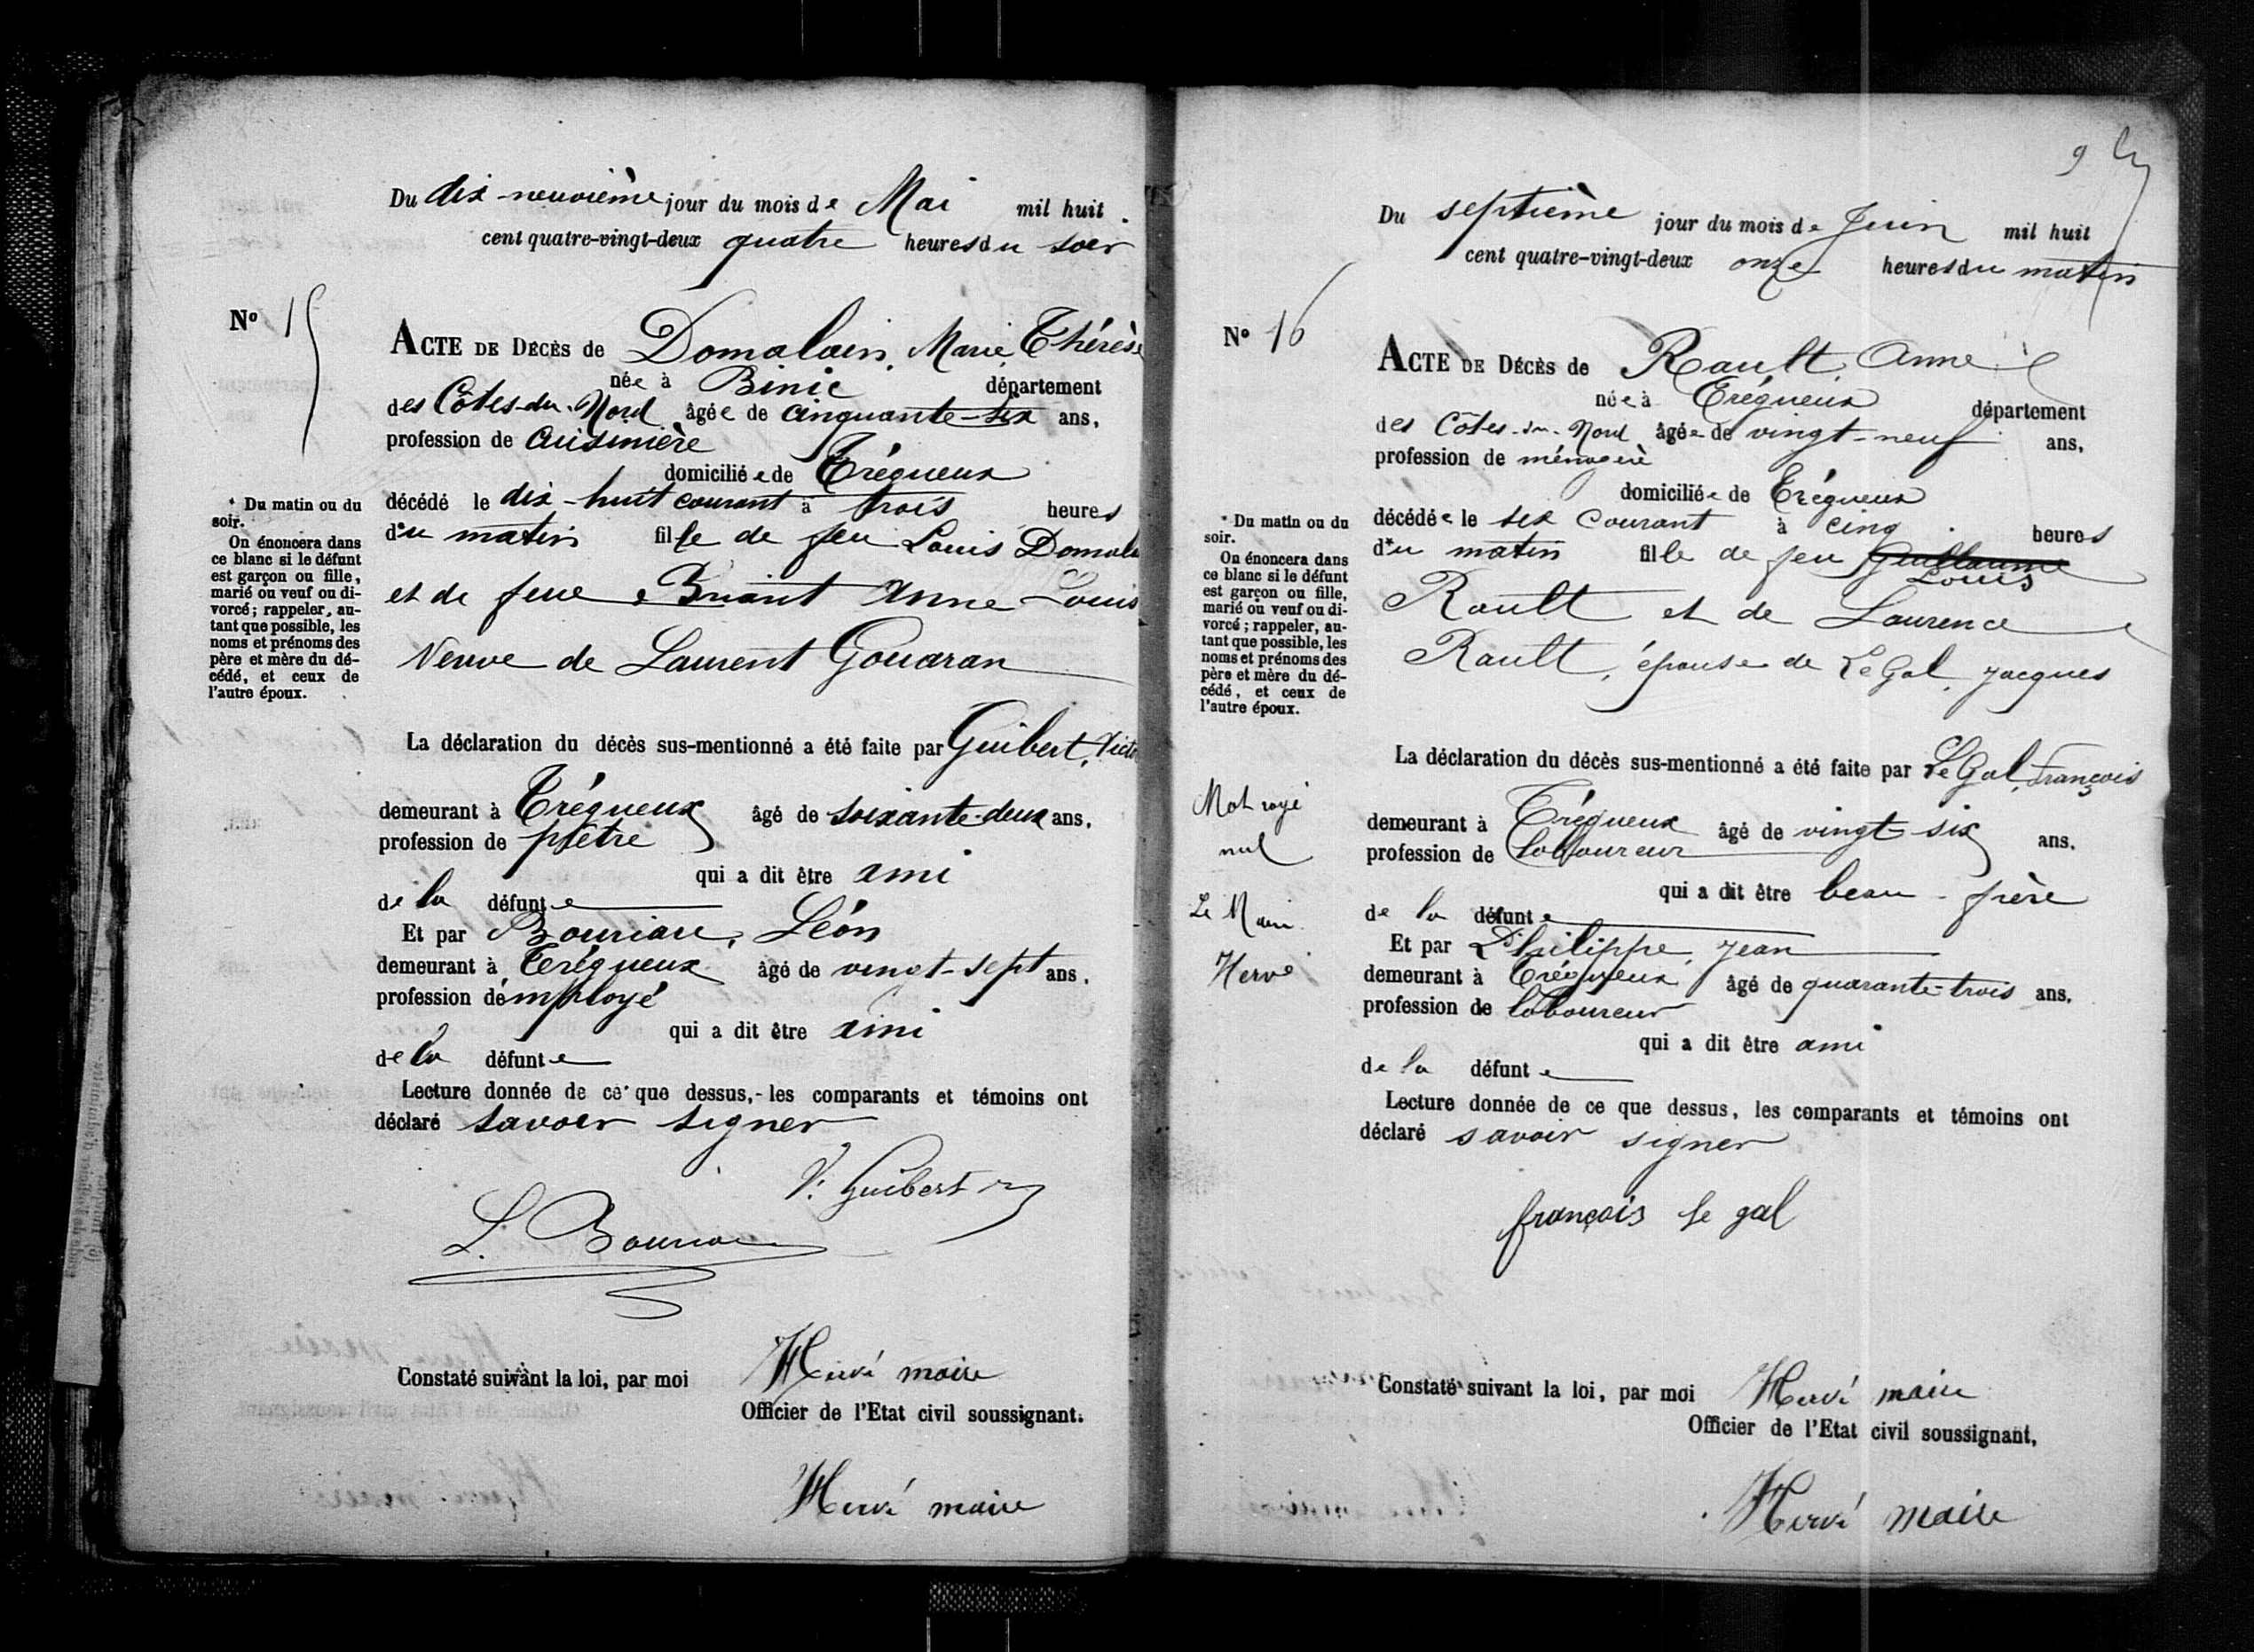 Du dix-neuvième jour du mois de Mai mil huit
cent quatre-vingt-deux quatre heures du soir
N° 15
ACTE DE DÉCÈS de Domalain, Marie Thérèse
née à Binic département
des Côtes-du-Nord âgée de cinquante-six ans,
profession de cuisinière
domiciliée de Trégueux
décédé le dix-huit courant à trois heures
du matin fille de feu Louis Domala
et de feue Briant Anne Louis
Veuve de Laurent Gouaran
* Du matin ou du
soir.
On énoncera dans
ce blanc si le défunt
est garçon ou fille,
marié ou veuf ou di-
vorcé; rappeler, au-
tant que possible, les
noms et prénoms des
père et mère du dé-
cédé, et ceux de
l'autre époux.
La déclaration du décès sus-mentionné a été faite par Guibert, Victo
demeurant à Trégueux âgé de soixante-deux ans,
profession de prêtre
qui a dit être ami
de la défunte
Et par Bouriau, Léon
demeurant à Trégueux âgé de vingt-sept ans,
profession d'employé
qui a dit être ami
de la défunte
Lecture donnée de ce que dessus, les comparants et témoins ont
déclaré savoir signer
V. Guibert
L. Bouriau
Constaté suivant la loi, par moi Hervé maire
Officier de l'Etat civil soussignant.
Hervé maire
9
Du septième jour du mois de Juin mil huit
cent quatre-vingt-deux onze heures du matin
N° 16
ACTE DE DÉCÈS de Rault, Anne
née à Trégueux département
des Côtes-du-Nord âgée de vingt-neuf ans,
profession de ménagère
domiciliée de Trégueux
décédée le six courant à cinq heures
du matin fille de feu Guillaume
Louis
Rault et de Laurence
Rault, épouse de Le Gal, Jacques
* Du matin ou du
soir.
On énoncera dans
ce blanc si le défunt
est garçon ou fille,
marié ou veuf ou di-
vorcé; rappeler, au-
tant que possible, les
noms et prénoms des
père et mère du dé-
cédé, et ceux de
l'autre époux.
La déclaration du décès sus-mentionné a été faite par Le Gal, François
demeurant à Trégueux âgé de vingt six ans.
profession de laboureur
qui a dit être beau-frère
de la défunte
Et par Philippe, Jean
demeurant à Trégueux âgé de quarante-trois ans,
profession de laboureur
qui a dit être ami
de la défunte
Mot rayé
nul
Le Maire
Hervé
Lecture donnée de ce que dessus, les comparants et témoins ont
déclaré savoir signer
françois le gal
Constaté suivant la loi, par moi Hervé maire
Officier de l'Etat civil soussignant,
Hervé maire